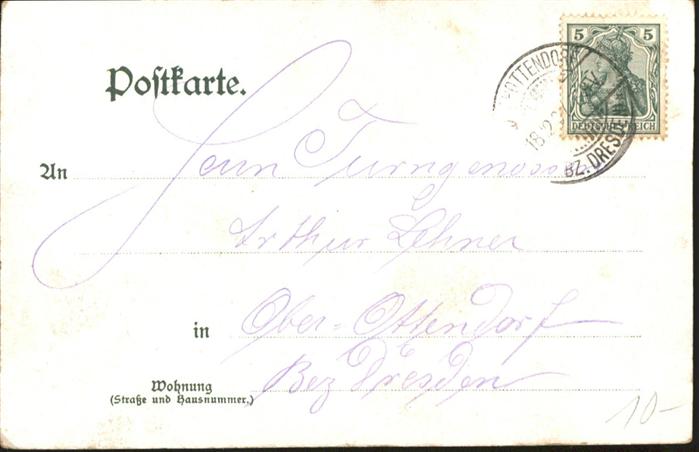 Postkarte.
5 5
DEUTSCHES REICH
OTTENDORF
18.2.
BZ. DRESDEN
An Turngenossen
Arthur Lehner
in Ober-Ottendorf
Bez Dresden
Wohnung
(Straße und Hausnummer.)
10-